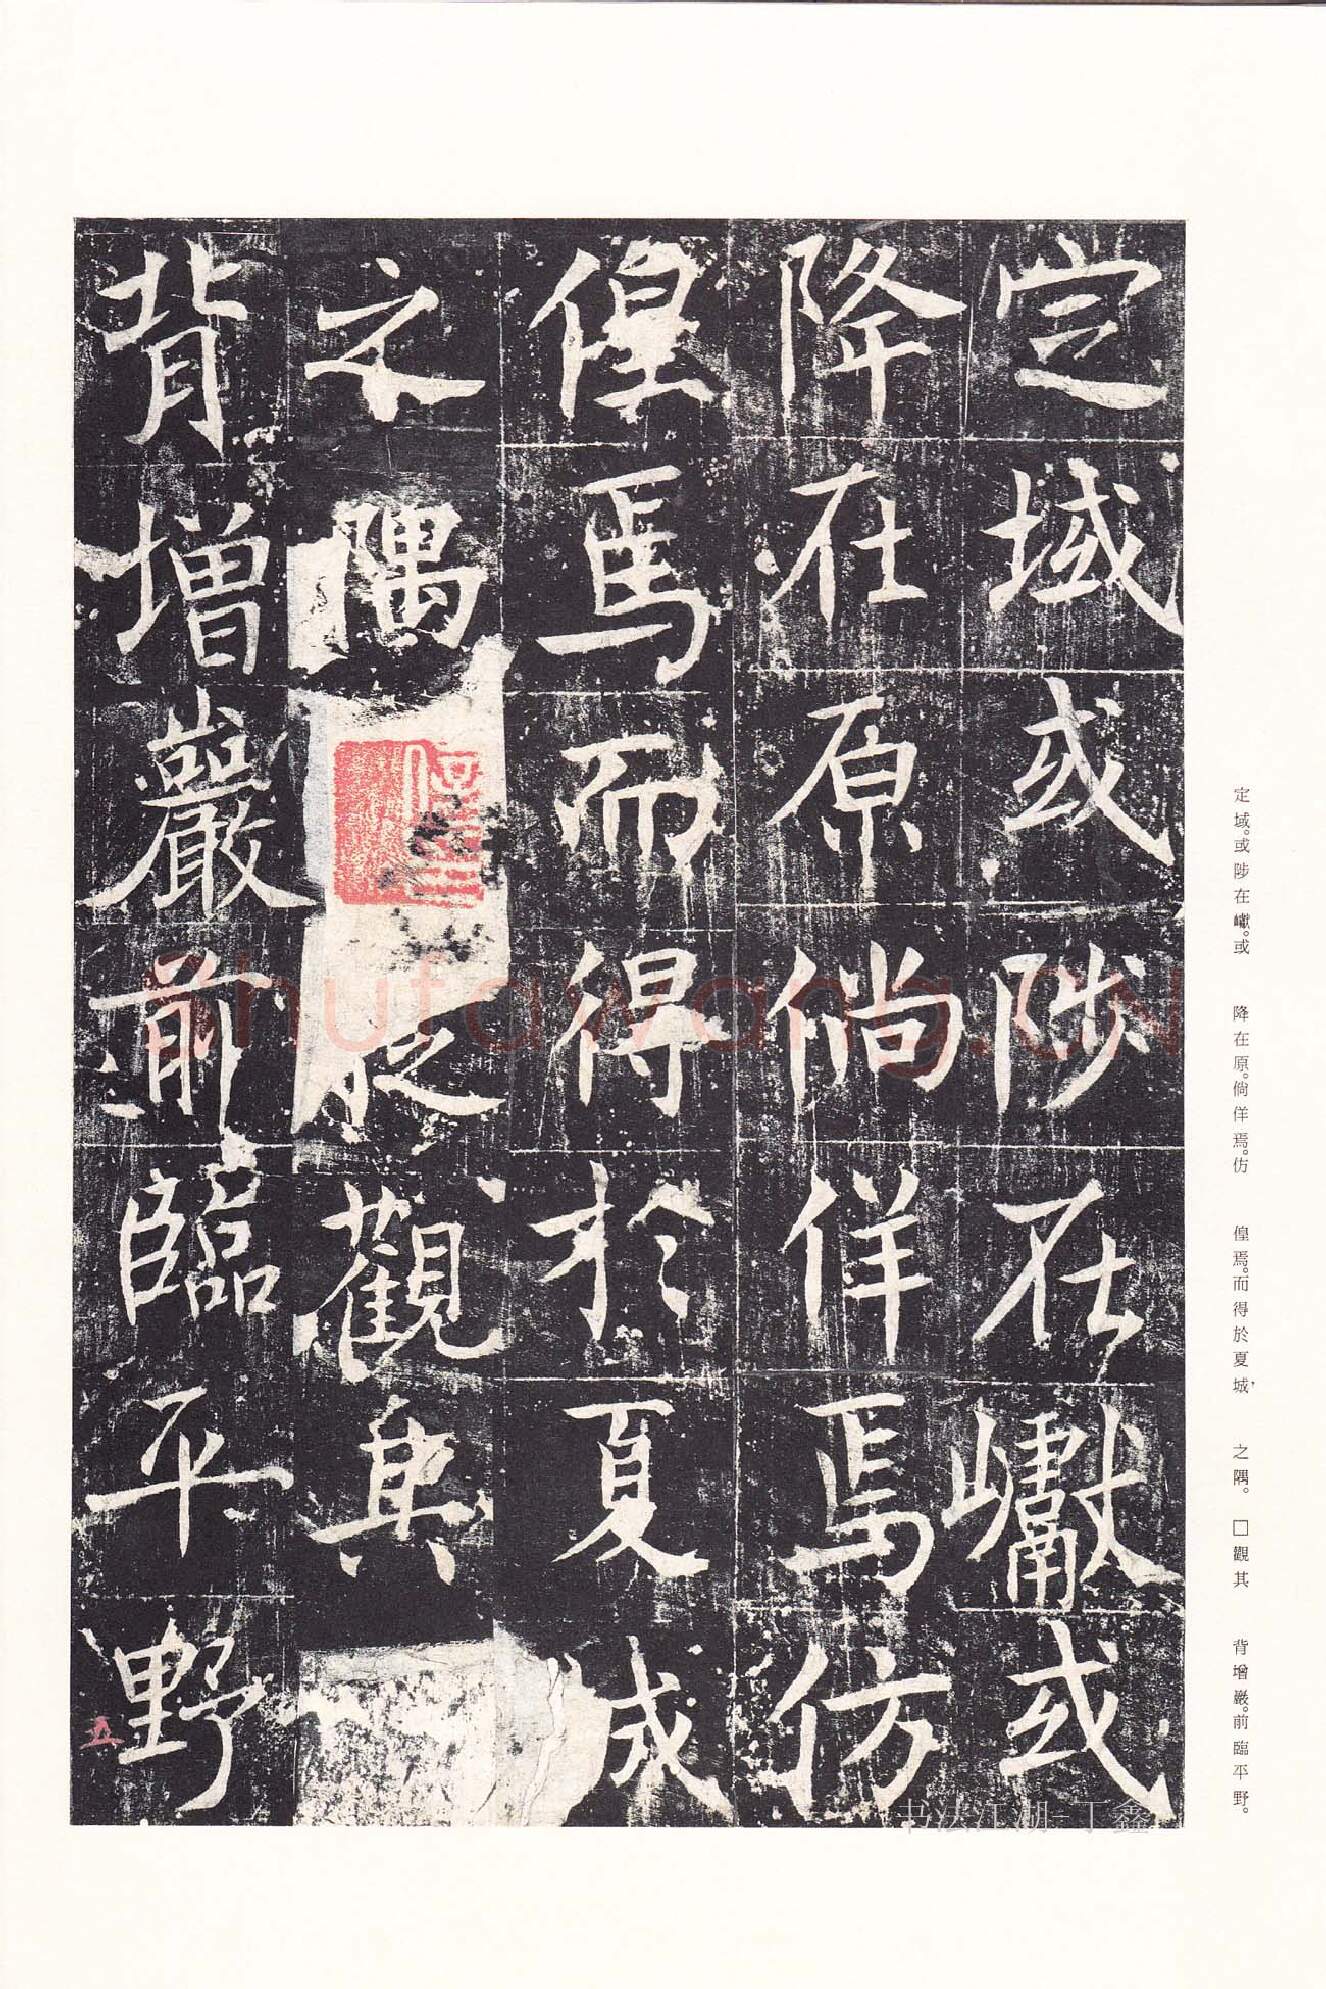 定域或陟在巘或
降在原倘佯焉仿
偟焉而得於夏城
之隅觀其
背增嚴前臨平野
五
定域。或陟在巘。或 降在原。倘佯焉。仿 偟焉。而得於夏城， 之隅。□觀其 背增嚴。前臨平野。
Shufawang.CN
书法江湖-丁鑫